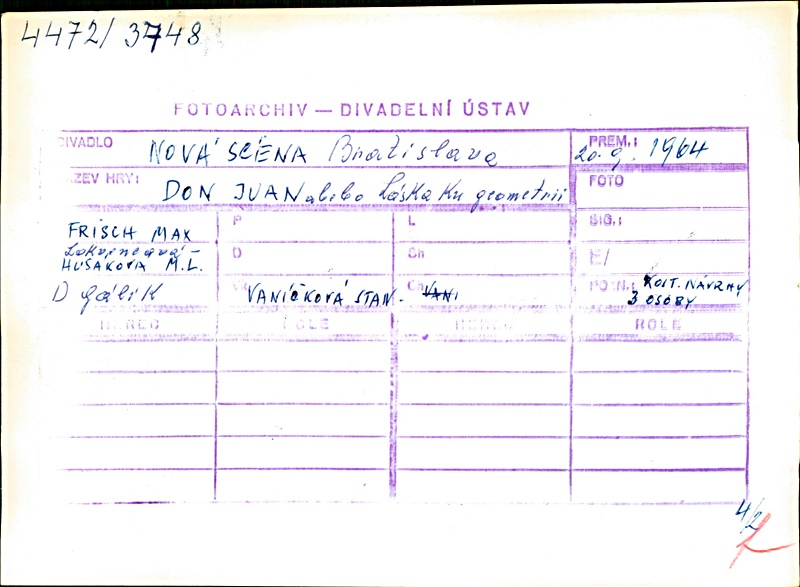 4472/ 3748
FOTOARCHIV — DIVADELNÍ ÚSTAV
DIVADLO NOVÁ SCÉNA Bratislava PREM.: 20. 9. 1964
ÁZEV HRY: DON JUAN alebo Láska ku geometrii FOTO
FRISCH MAX P L SIG.:
D Ch E/
HUSÁKOVÁ M.L.
D gálik VANÍČKOVÁ STAN. POZN.: KOST. NÁVRHY
3 OSOBY
HEREC ROLE HEREC ROLE
4/2